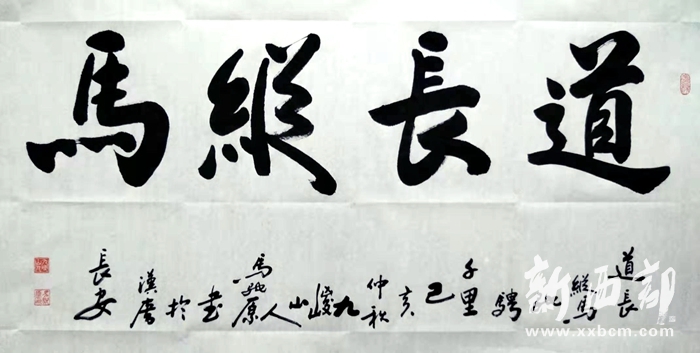 道長縱馬
道長
縱馬
騁
千里
己
亥
仲秋
九嵕
山人
馬
原
書
於
漢唐
長安
新西部
www.xxbcm.com